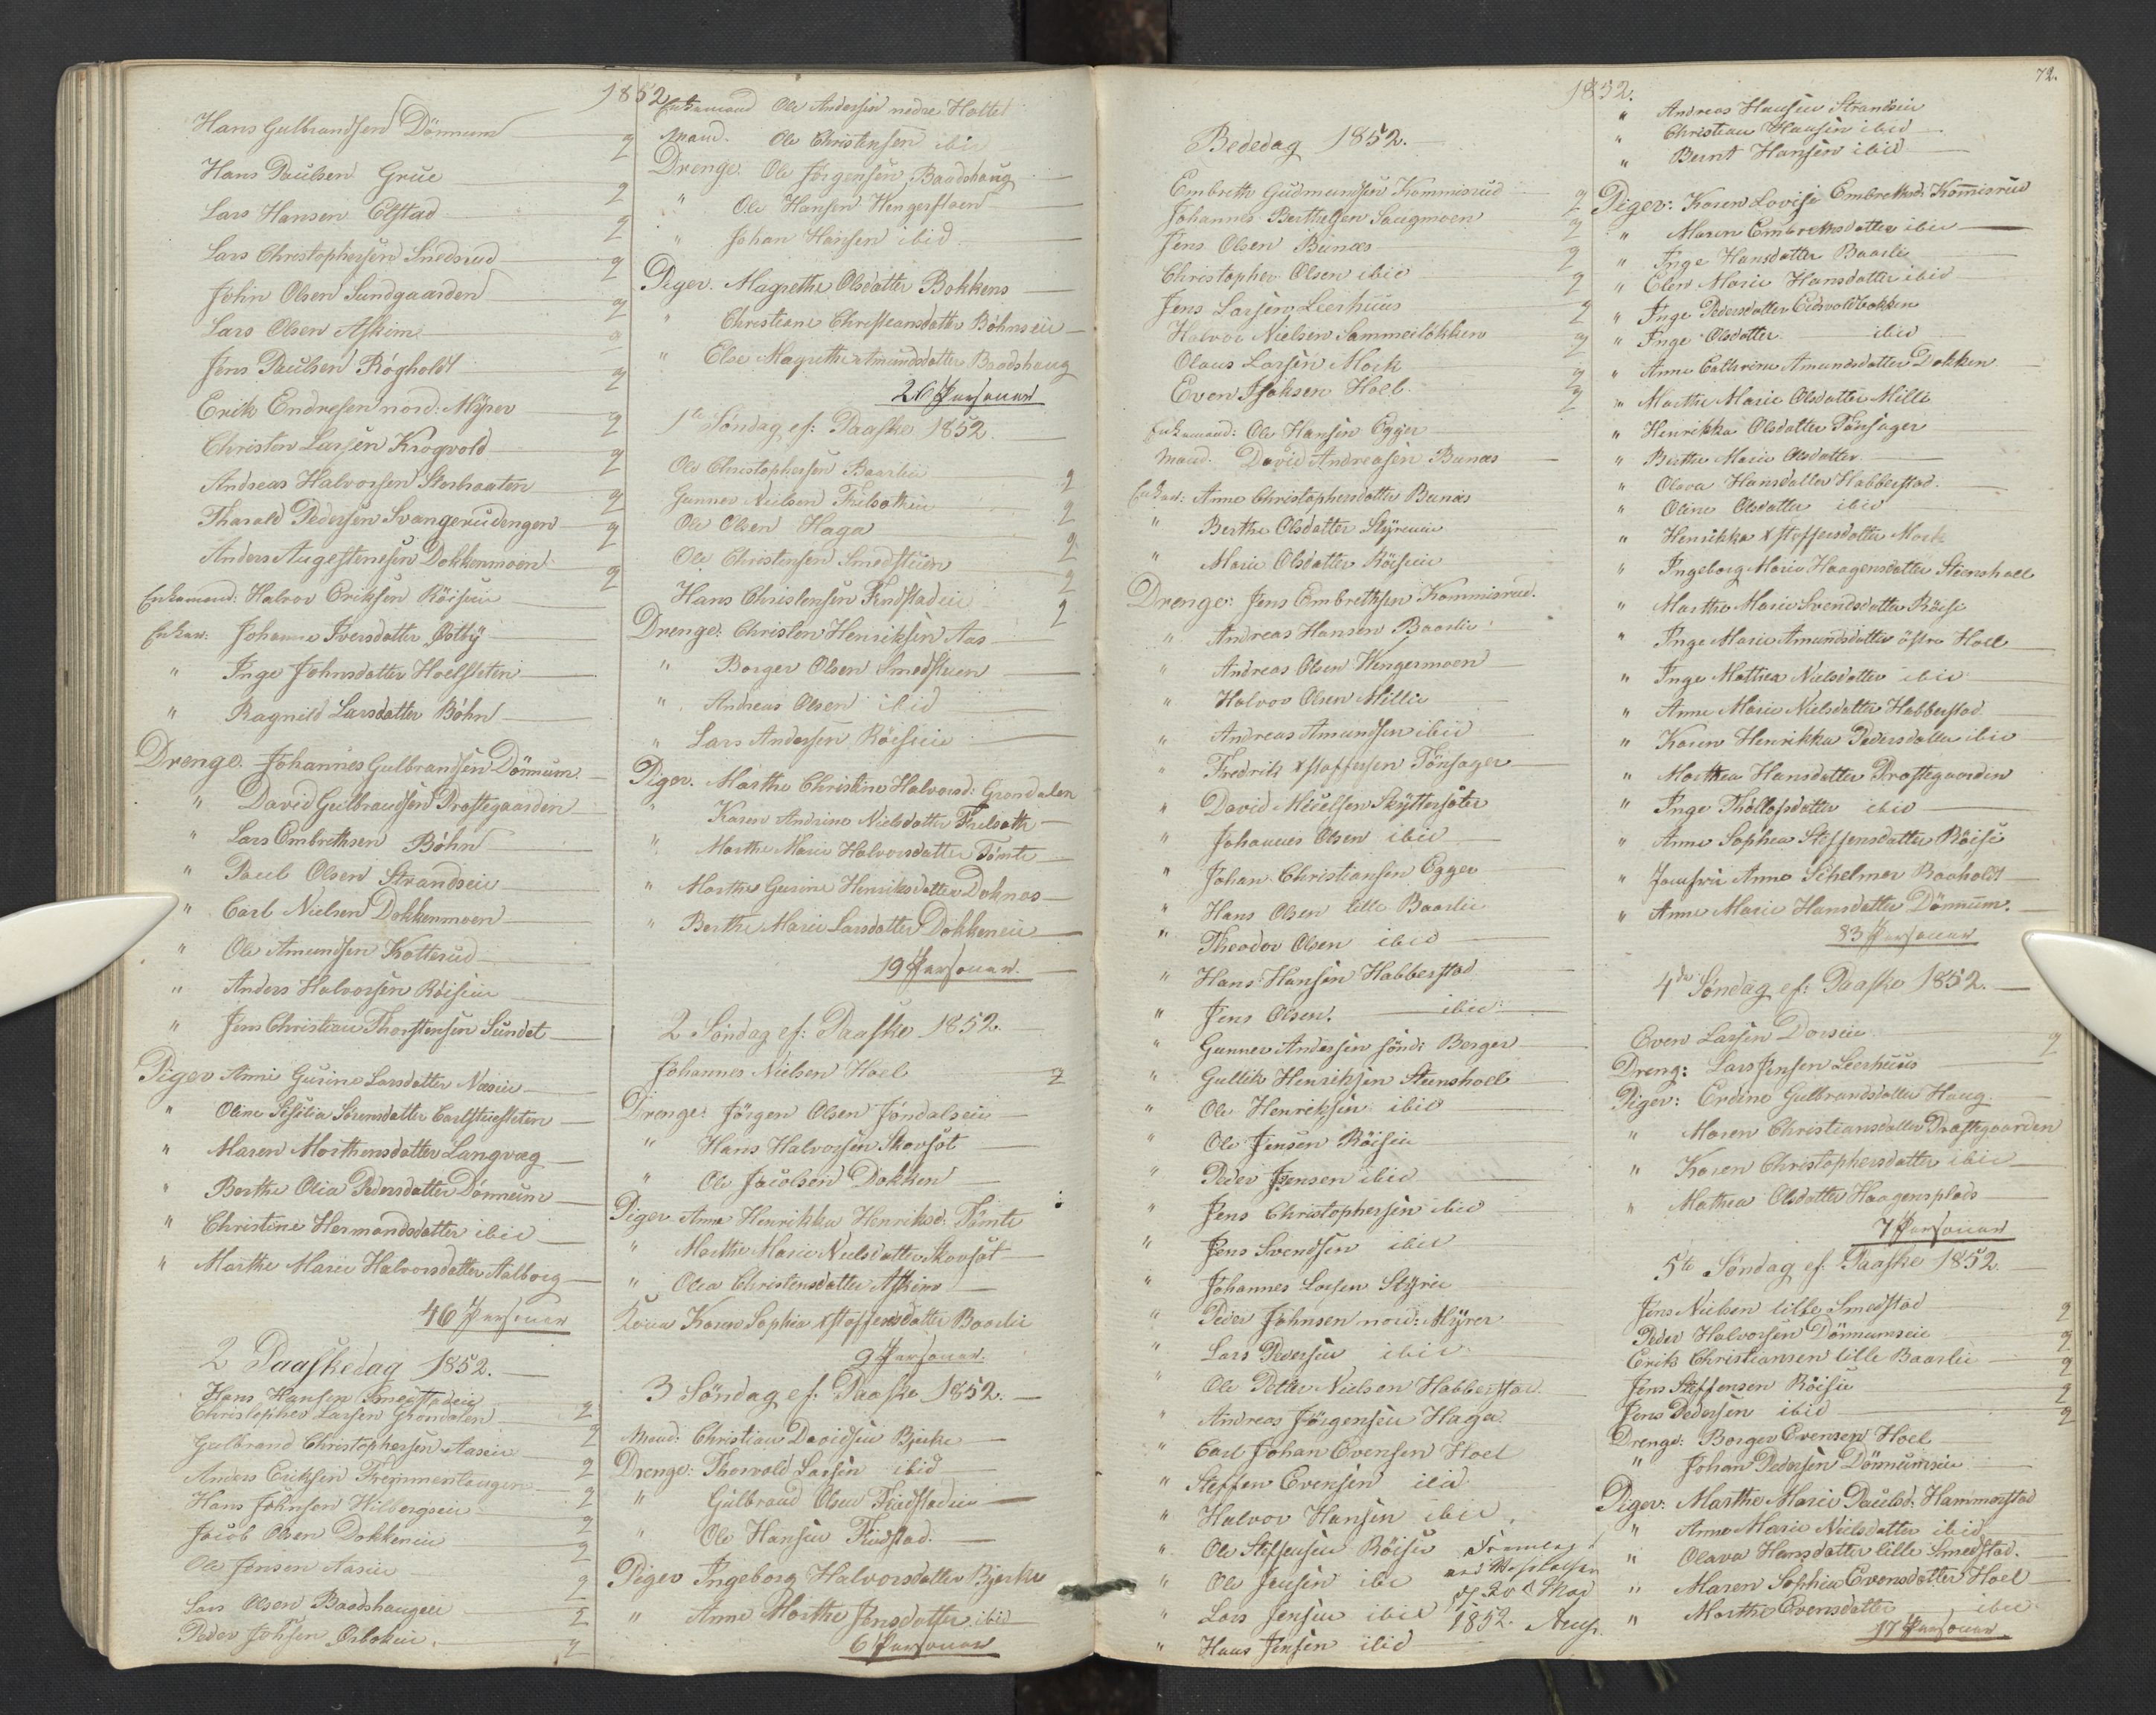 1852
Hans Gulbrandsen Dönnum 2
Hans Paulsen Grue 2
Lars Hansen Elstad 2
Lars Christophersen Snedsrud 2
John Olsen Sundgaarden 2
Lars Olsen Askim 2
Jens Paulsen Rögholdt 2
Erik Endresen nord: Myrer 2
Christen Larsen Krogvold 2
Andreas Halvorsen Storbraaten 2
Tharald Pedersen Svangerudengen 2
Anders Augestensen Dokkenmoen 2
Enkemand: Halvor Eriksen Röiseie
Enker: Johanne Iversdatter Østby
" Inge Johnsdatter Hoelsleten
" Ragnild Larsdatter Böhn
Drenge. Johannes Gulbrandsen Dönnum
" David Gulbrandsen Prostegaarden
" Lars Embrethsen Böhn
" Paul Olsen Strandseie
" Carl Nielsen Dokkenmoen
" Ole Amundsen Kotterud
" Anders Halvorsen Röiseie
" Jens Christian Thorstensen Sundet
Piger Anne Gurine Larsdatter Næseie
" Oline Sisilia Sörensdatter
" Maren Morthensdatter Langvæg
" Berthe Olia Pedersdatter Dönnum
" Christine Hermandsdatter ibid
" Marthe Marie Halvorsdatter Aalborg
46 Personer
2 Paaskedag 1852.
Hans Hansen Smedstadeie 2
Christopher Larsen Grondalen 2
Gulbrand Christophersen Aaseie 2
Anders Eriksen 2
Hans Johnsen Hilbergseie 2
Jacob Olsen Dokkeneie 2
Ole Jensen Aaseie 2
Lars Olsen Baadshaugen 2
Peder Johsen 2
Enkemand Ole Andersen nedre Holtet
Mand. Ole Christensen ibid
Drenge. Ole Jörgensen Baadshaug
" Ole Hansen Hengersloen
" Johan Hansen ibid
Piger. Magrethe Olsdatter Bokkens
" Christiane Christiansdatter Böhnseie
" Else Magrethe Amundsdatter Baadshaug
26 Personer
1te Söndag ef: Paaske 1852.
Ole Christophersen Baarlie 2
Gunner Nielsen Frilsetheie 2
Ole Olsen Haga 2
Ole Christensen Smedstuen 2
Hans Christensen Findstadeie 2
Drenge: Christen Henriksen Aas
" Borger Olsen Smedstuen
" Andreas Olsen ibid
" Lars Andersen Röiseie
Piger. Marthe Christine Halvorsd: Grondalen
" Karen Andrine Nielsdatter Frilseth
" Marthe Marie Halvorsdatter Tömte
" Marthe Gurine Henriksdatter Doknæs
" Berthe Marie Larsdatter Dokkeneie
19 Personer.
2 Söndag ef: Paaske 1852
Johannes Nielsen Hoel 2
Drenge: Jörgen Olsen Jöndalseie
" Hans Halvorsen Skovsöt
" Ole Jacobsen Dokken
Piger Anne Henrikka Henriksd. Tömte
" Marthe Marie Nielsdatter Skovsöt
" Olea Christensdatter Askim
Kone Karen Sophia Xstoffersdatter Baarlie
9 Personer.
3 Söndag ef: Paaske 1852.
Mand: Christian Davidsen Bjerke
Drenge: Thorvald Larsen ibid
" Gulbrand Olsen Findstadeie
" Ole Hansen Findstad.
Piger Ingeborg Halvorsdatter Bjerke
" Anne Marthe Jensdatter ibid
6 Personer
1852.
72.
Bededag 1852.
Embreth Gudmundsen Kommisrud 2
Johannes Berthelsen Saugmoen 2
Jens Olsen Bunæs 2
Christopher Olsen ibid 2
Jens Larsen Leerhuus 2
Halvor Nielsen Sammeilökken 2
Olaus Larsen Mork 2
Even Isaksen Hoel 2
Enkemand: Ole Hansen Egger
Mand. David Andreasen Bunæs
Enker: Anne Christophersdatter Bunæs
" Berthe Olsdatter Styrieie
" Marie Olsdatter Röiseie
Drenge: Jens Embrethsen Kommisrud.
" Andreas Hansen Baarlie
" Andreas Olsen Hengermoen
" Halvor Olsen Millie
" Andreas Amundsen ibid
" Fredrik Xstoffersen Tönsager
" David Micelsen Skyttersäter
" Johannes Olsen ibid
" Johan Christiansen Egger
" Hans Olsen lille Baarlie
" Theodor Olsen ibid
" Hans Hansen Habberstad
" Jens Olsen. ibid
" Gunner Andersen sönd: Berger
" Gullik Henriksen Steensholl
" Ole Henriksen ibid
" Ole Jensen Röiseie
" Peder Jensen ibid
" Jens Christophersen ibid
" Jens Svendsen ibid
" Johannes Larsen Styrie
" Peder Johnsen nord: Myrer
" Lars Pedersen ibid
" Ole Petter Nielsen Habberstad
" Andreas Jörgensen Haga
" Carl Johan Evensen Hoel
" Steffen Evensen ibid
" Halvor Hansen ibid
" Ole Steffensen Röise
" Ole Jensen ibid
" Lars Jensen ibid
" Hans Jensen ibid
Fremlagt
ved
d. 20 Mai
1852.
" Andreas Hansen Strandseie
" Christian Hansen ibid
" Bernt Hansen ibid
Piger: Karen Lovise Embrethsd: Kommisrud
" Maren Embrethsdatter ibid
" Inge Hansdatter Baarlie
" Elen Marie Hansdatter ibid
" Inge Pedersdatter Eidsvoldbakken
" Inge Olsdatter ibid
" Anne Cathrine Amundsdatter Dokken
" Marthe Marie Olsdatter Millie
" Henrikka Olsdatter Tönsager
" Berthe Marie Olsdatter
" Olava Hansdatter Habberstad.
" Oline Olsdatter ibid
" Henrikka Xstoffersdatter Mork
" Ingeborg Marie Haagensdatter Steensholl
" Marthe Marie Svendsdatter Röise
" Inge Marie Amundsdatter östre Hoel
" Inge Mathea Nielsdatter ibid
" Anne Marie Nielsdatter Habberstad
" Karen Henrikka Pedersdatter ibid
" Marthea Hansdatter Prostegaarden
" Inge Thollofsdatter ibid
" Anne Sophia Steffensdatter Röise
" Jomfrue Anne Schelmer Raaholdt
" Anne Marie Hansdatter Dönnum.
83 Personer
4de Söndag ef: Paaske 1852.
Even Larsen Dorseie 2
Dreng: Lars Jensen Leerhuus
Piger: Erdine Gulbrandsdatter Haug
" Maren Christiansdatter Prostegaarden
" Karen Christophersdatter ibid
" Mathea Olsdatter Haagensplads
7 Personer
5te Söndag ef. Paaske 1852.
Jens Nielsen lille Smedstad 2
Peder Halvorsen Dönnumseie 2
Erik Christiansen lille Baarlie 2
Jens Steffensen Röise 2
Jens Pedersen ibid 2
Drenge: Borger Evensen Hoel
" Johan Pedersen Dönnumseie
Piger: Marthe Marie Paulsd: Hammerstad
" Anne Marie Nielsdatter ibid
" Olava Hansdatter lille Smedstad.
" Maren Sophia Evensdatter Hoel
" Marthe Evensdatter ibid
17 Personer